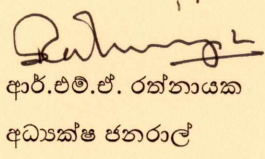 ආර්.එම්.ඒ. රත්නායක
අධ්‍යක්ෂ ජනරාල්